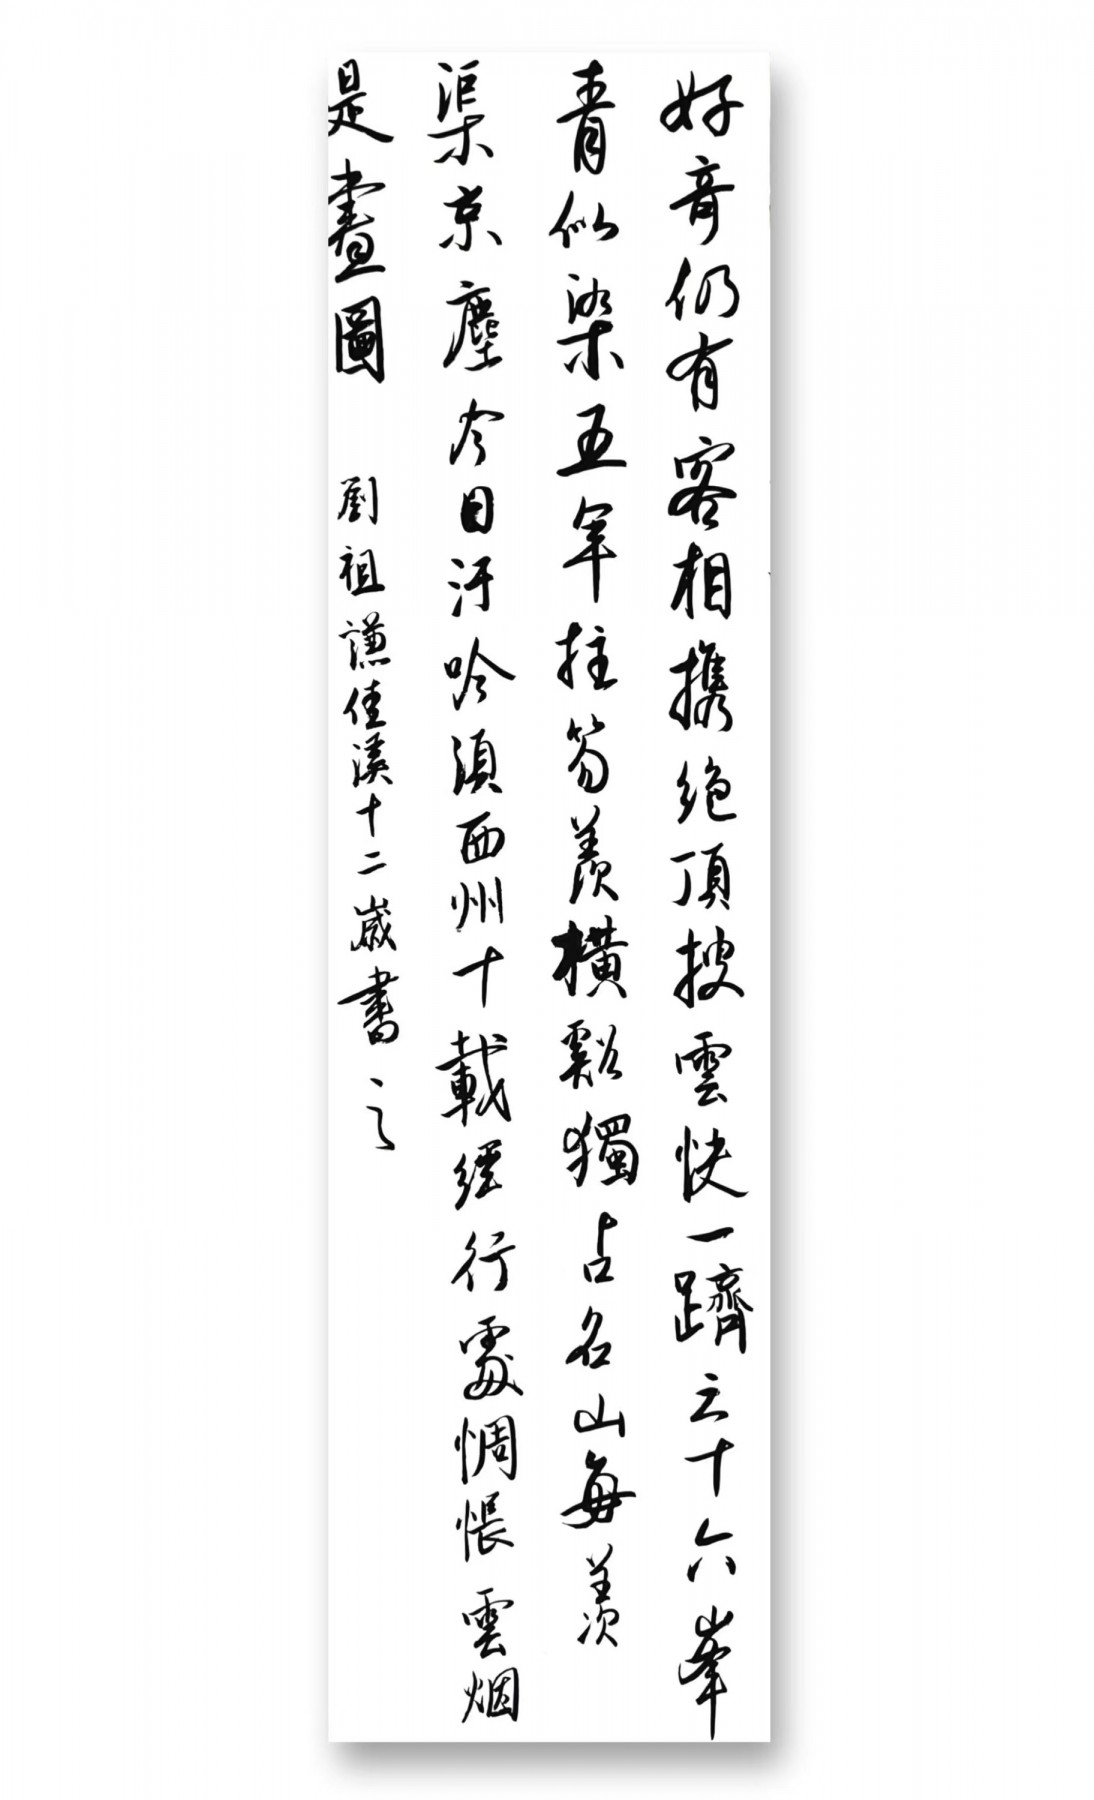 好奇仍有客相携絕頂披雲快一躋三十六峯
青似染五年拄笏羨橫谿獨占名山每羨
渠京塵今日汙吟須西州十載經行處惆悵雲烟
是畫圖
劉祖謙佳十二歲書之